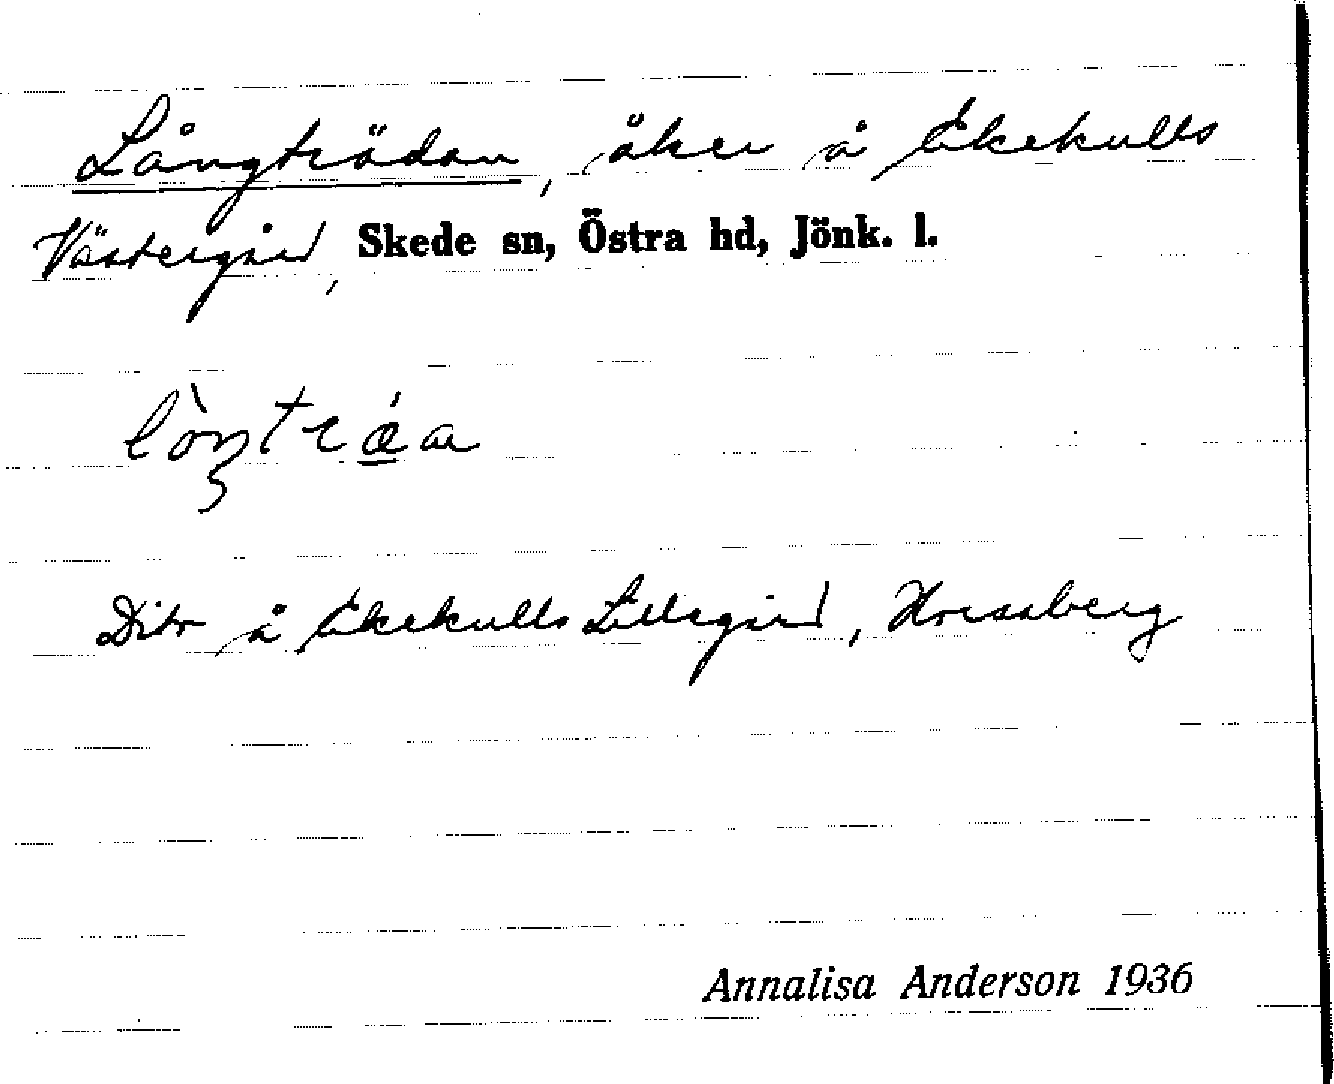 Långträdan, åker å Ekekulls
Västergård, Skede sn, Östra hd, Jönk. l.
Dito å Ekekulls Lillegård,
Annalisa Anderson 1936